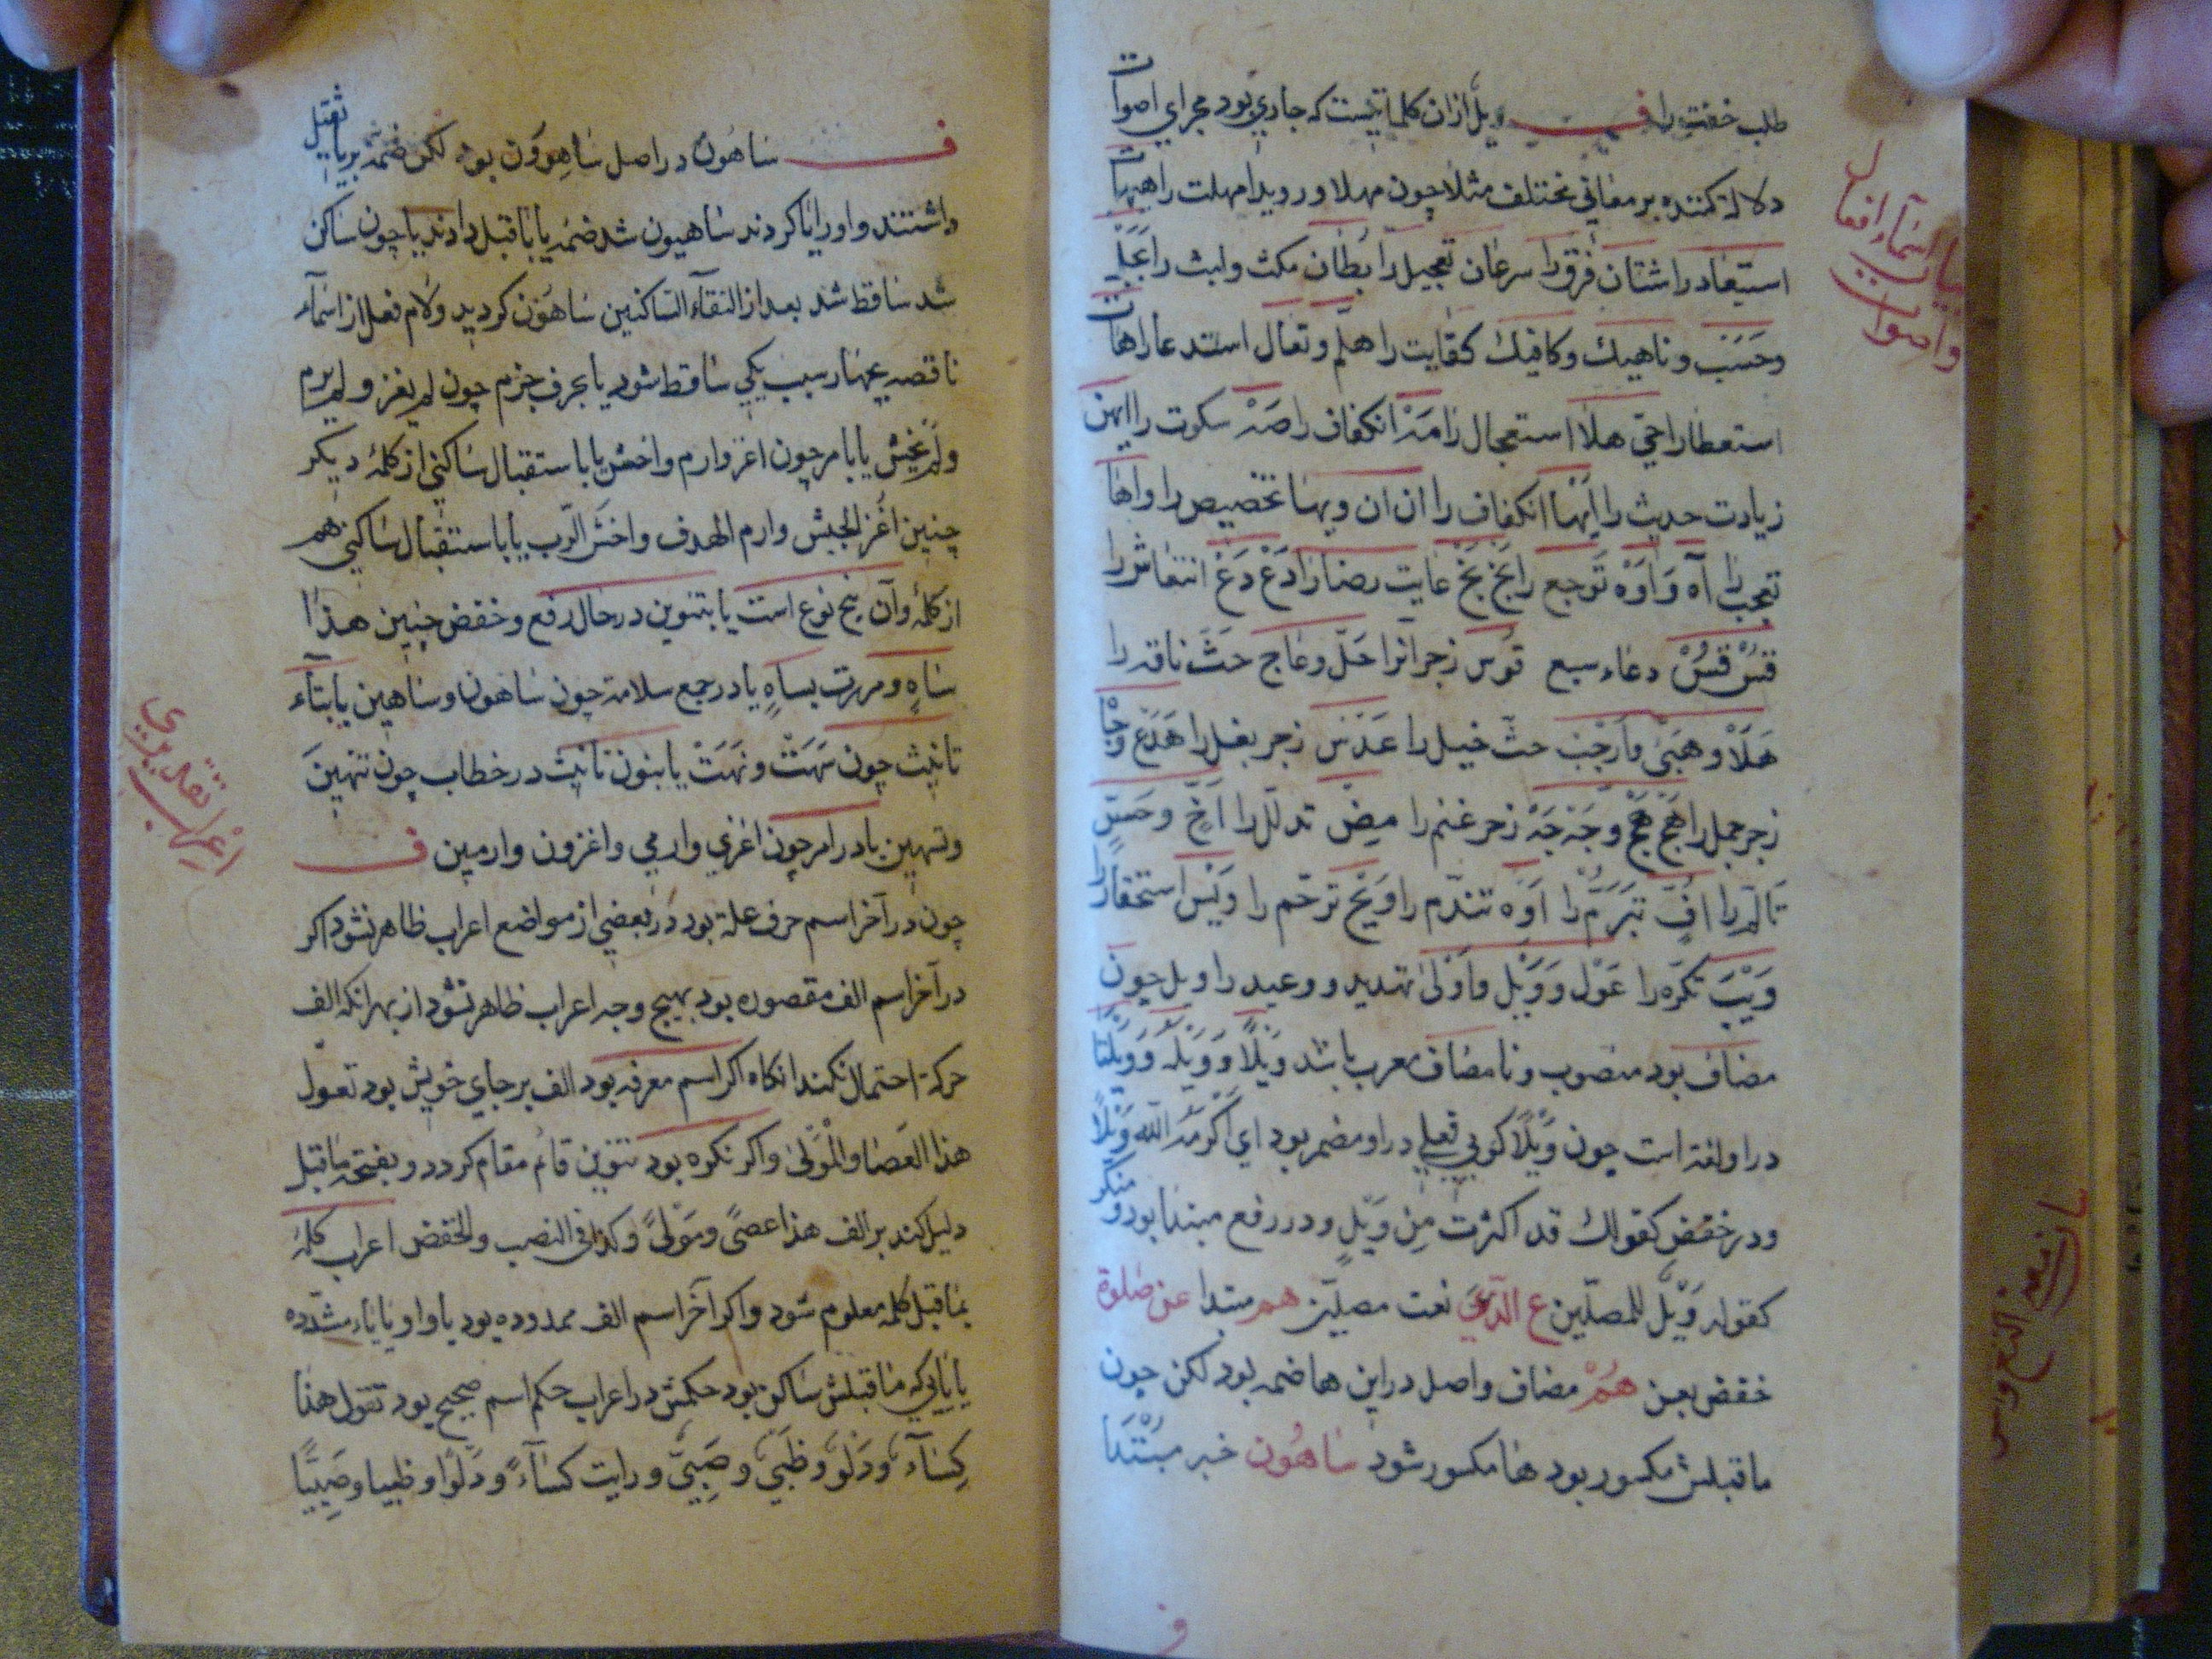 طلب خفتی را ف ویل ازان کلماتیست که جاری بود مجرای اصوات
دلالة کننده بر معانی مختلف مثلا چون مهلا و رویدا مهلت را هیهات
استبعاد را شتان فرق را سرعان تعجیل را بطان مکث و لبث را
وحسب وناهیك وکافیك کفایت را هلم وتعال استدعا را هات
استعطا را حی هلا استعجال را مه انکفاف را صه سکوت را ایهن
زیادت حدیث را ایها انکفاف را ان ان ویها تخصیص را واها
تعجب را آه وَاوَه توجع را بَخ بَخ غایت رضا را دَعْ دَعْ انتعاش را
قسْ قسْ دعاء سبع قوس زجر انرا حَلّ وعاج حثّ ناقه را
هَلَا وهبی وارحب حثّ خیل را عَدَسْ زجر بغل را هدع
زجر جمل را هَجْ هَجْ وجَهْ جَهْ زجر غنم را مِضّ تدلّل را اَخّ وحَسِّ
تالّم را افّ تبرّم را اَوّه تندّم را وَیْح ترحّم را وَیْس استحقار را
وَیْبَ تکرّه را عَوْل وَوَیْل واَوْلیٰ تهدید و وعید را ویل چون
مضاف بود منصوب و نا مضاف معرب باشد وَیْلًا وَوَیْلَهُ وَوَیْلَتَا
درا و لغة است چون وَیْلًا کویی فعلی درا و مضمر بود ای اَکْرَمَهُ الله وَیْلًا
ودر خفض کقولك قد اکثرت مِن وَیْلٍ ودر رفع مبتدا بود و منکر
کقوله وَیْلٌ للمصلّین ع الّذین نعت مصلّین هم مبتدا عن صلوة
خفض بعن هُمْ مضاف و اصل دراین ها ضمه بود لکن چون
ماقبلش مکسور بود ها مکسور شود ساهُون خبر مبتدا
بیان اسماء افعال
واصوات
ف ساهُون دراصل ساهِوُون بود لکن ضمه بریا ثقیل
داشتند واو را یا کردند ساهیون شد ضمه یا بما قبل دادند یا چون ساکن
شد ساقط شد بعد از التقاء الساکنین ساهُون کردید ولام فعل از اسماء
ناقصه بچهار سبب یکی ساقط شود یا بحرف جزم چون لم یغز ولم یرم
ولم یخش یا بامر چون اغز وارم واخش یا باستقبال ساکنی از کلمهٔ دیکر
چنین اغز الجیش وارم الهدف واخش الرّب یا باستقبال ساکنی هم
از کلمهٔ وآن پنج نوع است یا بتنوین درحال رفع وخفض چنین هذا
ساهٍ ومررت بساهٍ یا در جمع سلامة چون ساهون وساهین یا بتاء
تانیث چون سَهَتْ ونَهَتْ یا بنون تانیث در خطاب چون تنهینَ
وتسهین یا در امر چون اغزی وارمی واغزون وارمین ف
چون درآخر اسم حرف علة بود در بعضی از مواضع اعراب ظاهر نشود اکر
درآخر اسم الف مقصوره بود بهیچ وجه اعراب ظاهر نشود از بهر انکه الف
حرکة احتمال نکند انکاه اکر اسم معرفه بود الف بر جای خویش بود تقول
هذا العصا والمولیٰ واکر نکره بود تنوین قائم مقام کردد وبفتحه ماقبل
دلیل کند بر الف هذا عصًی ومَوْلیً وکذا فی النصب والخفض اعراب کلمهٔ
بماقبل کلمه معلوم شود واکر آخر اسم الف ممدوده بود یا واو یا یاء مشدّده
یا یائی که ماقبلش ساکن بود حکمش در اعراب حکم اسم صحیح بود تقول هذا
کِسَآءٌ ودَلْوٌ وظَبْیٌ وصَبِیٌّ ورایت کسَآءً ودَلْوًا وظبیا وصَبِیًّا
اعراب تقدیری